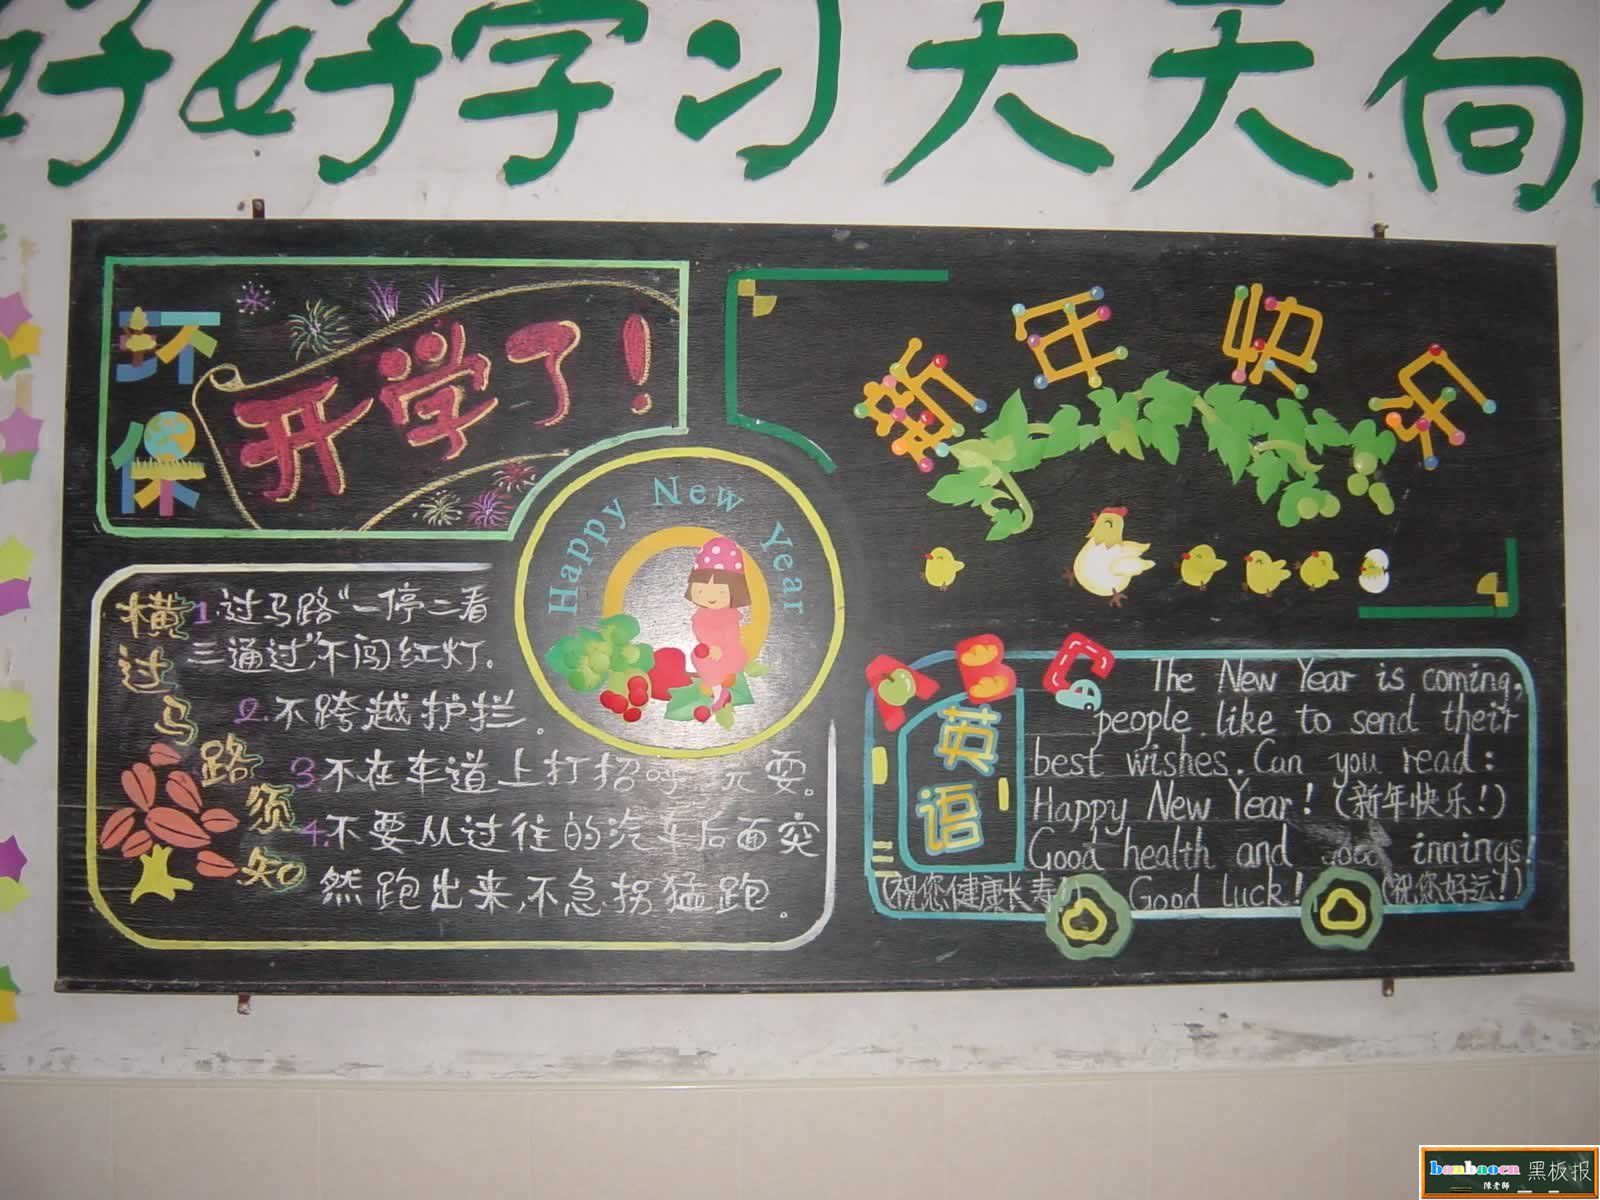 好好学习天天向
环保
开学了!
Happy New Year
新年节
横过马路须知
1.过马路“一停二看
三通过”不闯红灯。
2.不跨越护拦。
3.不在车道上打招呼 耍。
4.不要从过往的汽车后面突
然跑出来,不急拐猛跑。
ABC
英语
The New Year is coming,
people like to send their
best wishes. Can you read:
Happy New Year! (新年快乐!)
Good health and good innings!
(祝您健康长寿!) Good luck! (祝您好运!)
banbaocn 黑板报
陳老師